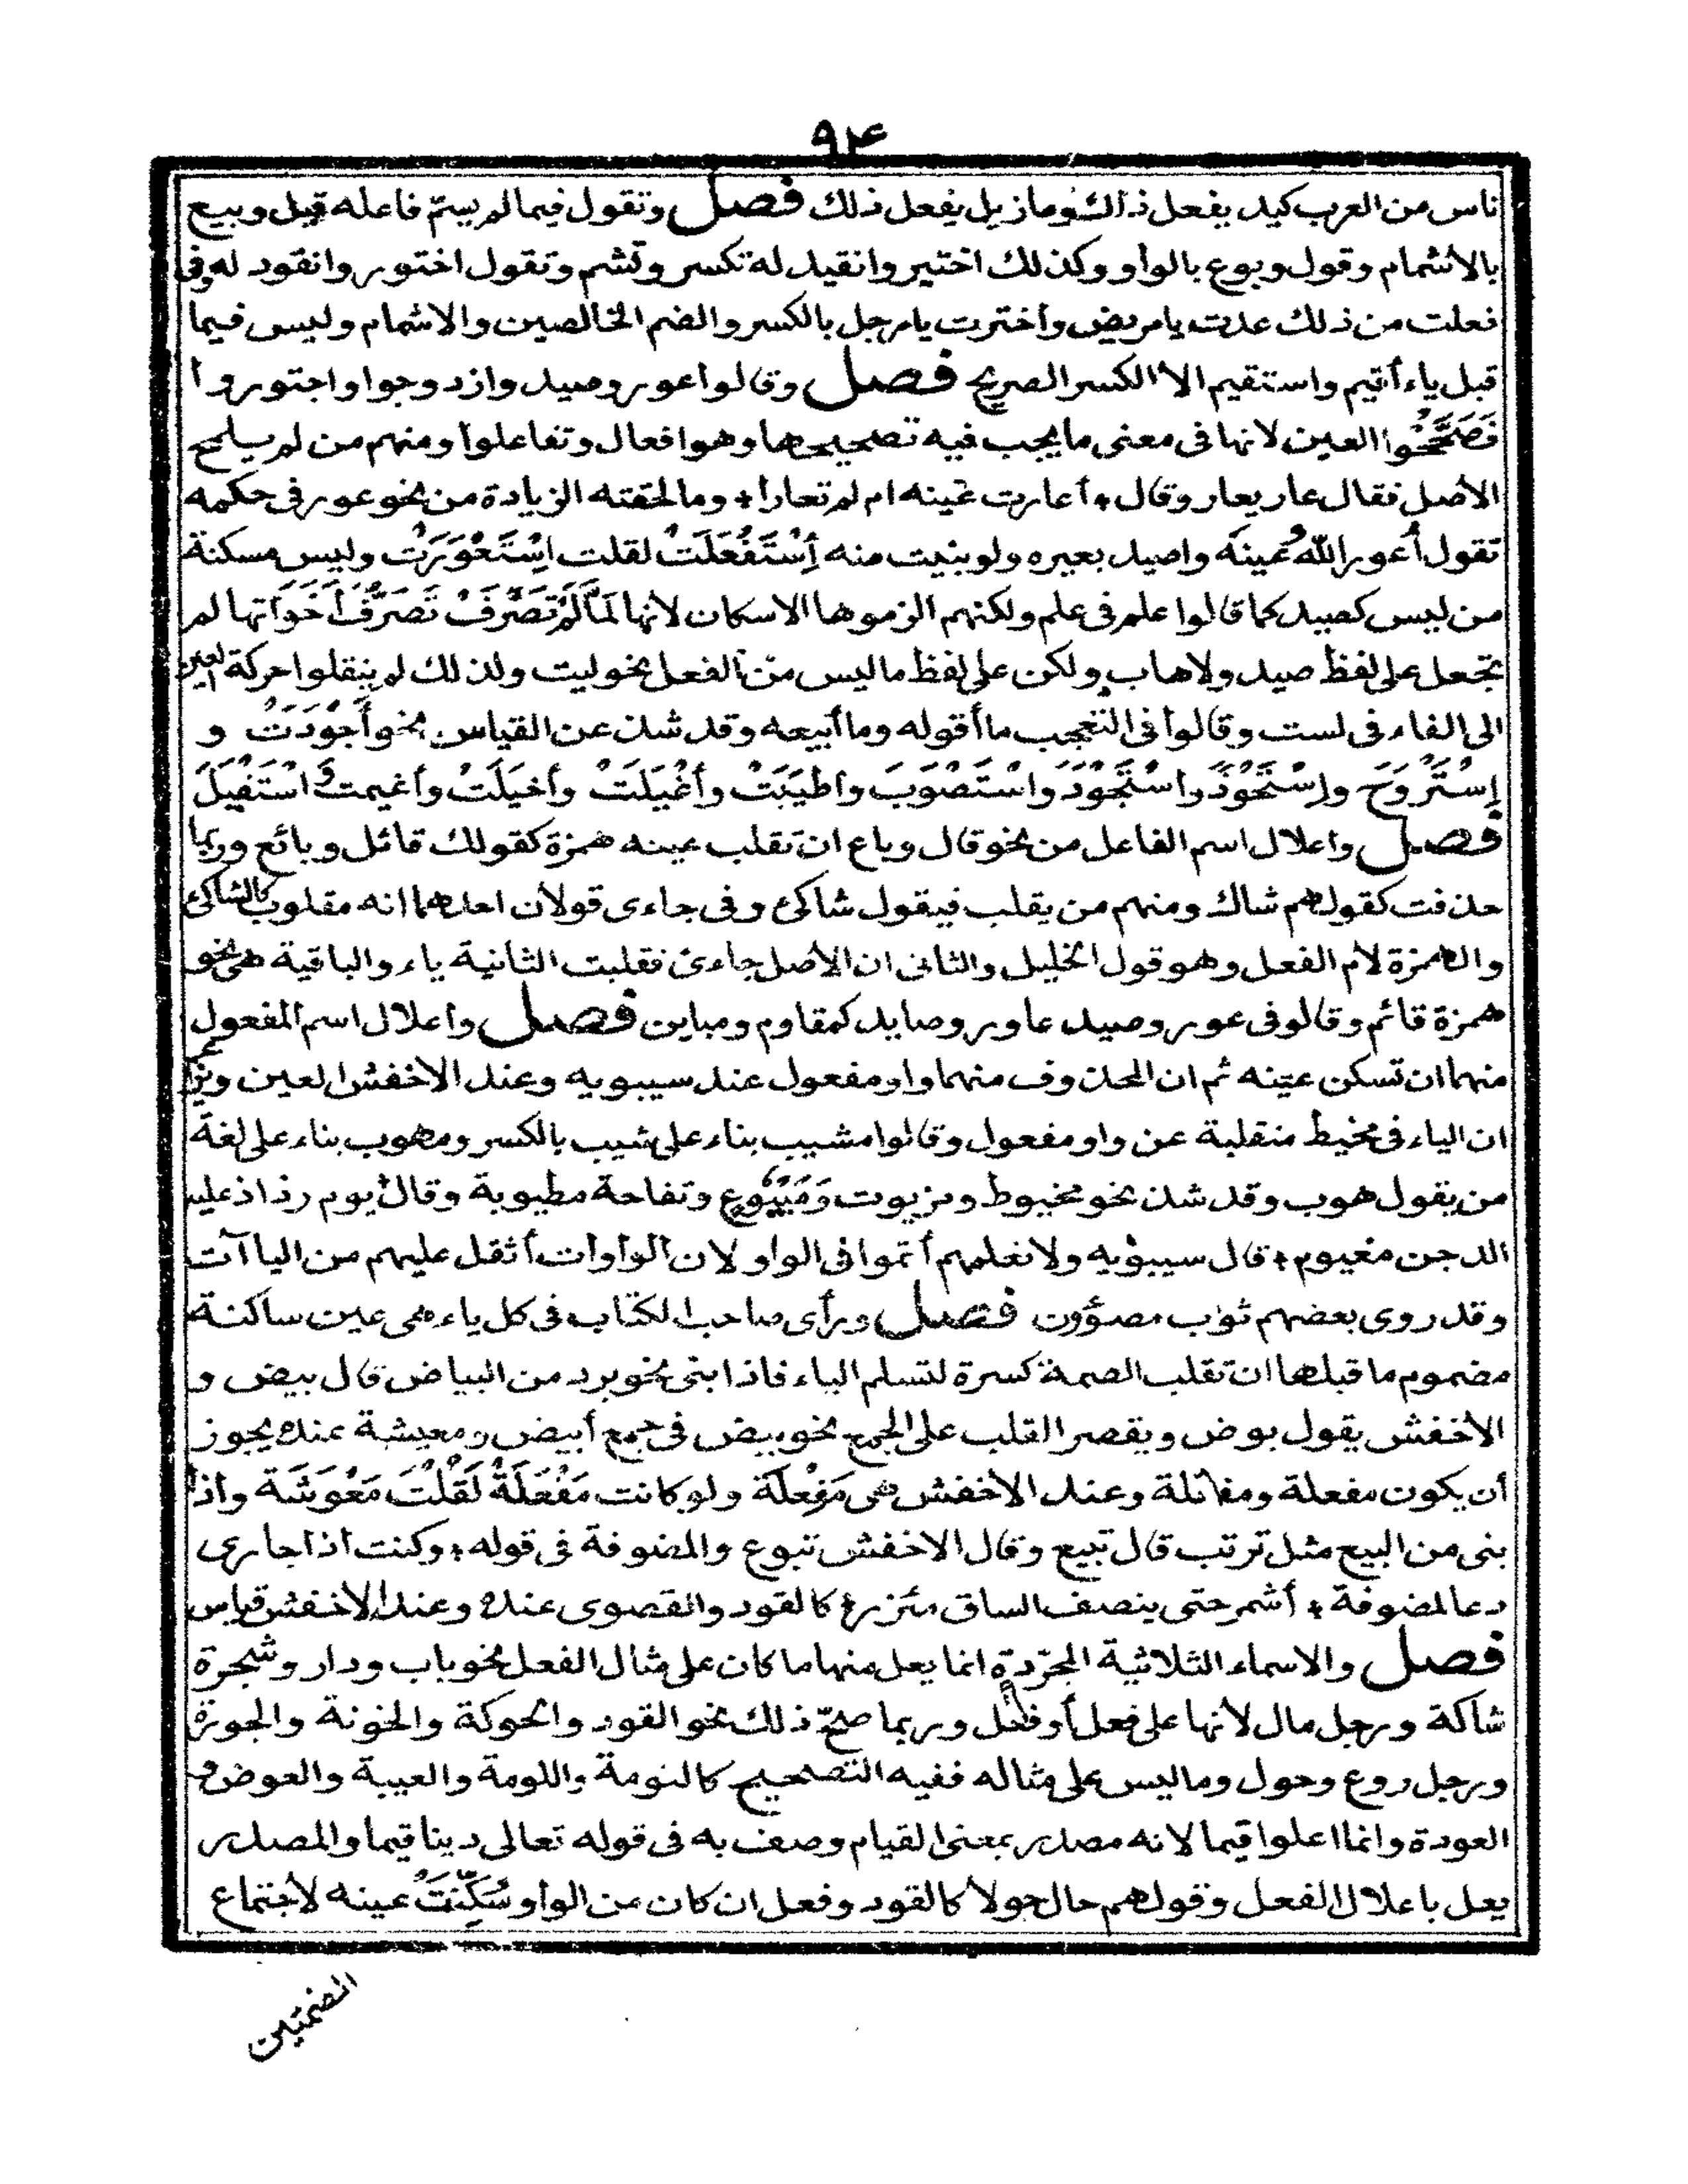 ٩٤
ناس من العرب كيد يفعل ذاك وما زيل يفعل ذلك فصل وتقول فيما لم يسمّ فاعله قيل وبيع
بالاشمام وقول وبوع بالواو وكذلك اختير وانقيد له تكسر وتشم وتقول اختور وانقود له وفى
فعلت من ذلك عدت يا مريض وأخترت يا رجل بالكسر والضم الخالصين والاشمام وليس فيما
قبل ياء أقيم واستقيم الا الكسر الصريح فصل وقالوا عور وصيد وازدوجوا واجتوروا
فَصَحَّحُوا العين لانها فى معنى ما يجب فيه تصحيحها وهو افعال وتفاعلوا ومنهم من لم يلمح
الأصل فقال عار يعار وقال * أعارت عينه ام لم تعارا * وما لحقته الزيادة من نحو عور فى حكمه
تقول أعور اللهُ عينَه واصيد بعيره ولو بنيت منه اِسْتَفْعَلَتْ لقلت اِسْتَعْوَرَتْ وليس مسكنة
من ليس كصيد كما قالوا علم فى علم ولكنهم الزموها الاسكان لأنها لَمَّا لَمْ تَصَرَّفْ تَصَرُّفَ أَخَوَاتها لم
تجعل على لفظ صيد ولا هاب ولكن على لفظ ما ليس من الفعل نحو ليت ولذلك لم ينقلوا حركة العين
الى الفاء فى لست وقالوا فى التعجب ما أقوله وما أبيعه وقد شذ عن القياس نحو أَجْوَدَتْ و
اِسْتَرْوَحَ واِسْتَحْوَذَ واسْتَجْوَدَ واسْتَصْوَبَ وأطْيَبَتْ وأَغْيَلَتْ وأَخيَلَتْ وأغيمت واسْتَفْيَلَ
فصل واعلال اسم الفاعل من نحو قال وباع ان تقلب عينه همزة كقولك قائل وبائع وربما
حذفت كقولهم شاك ومنهم من يقلب فيقول شاكى وفى جاءى قولان احدهما انه مقلوب كالشاكى
والهمزة لام الفعل وهو قول الخليل والثانى ان الأصل جاءئ فقلبت الثانية ياء والباقية هى نحو
همزة قائم وقالو فى عور وصيد عاور وصايد كمقاوم ومباين فصل واعلال اسم المفعول
منهما ان تسكن عينه ثم ان المحذوف منهما واو مفعول عند سيبويه وعند الاخفش العين ويزعم
ان الياء فى مخيط منقلبة عن واو مفعول وقالوا مشيب بناء على شيب بالكسر ومهوب بناء على لغة
من يقول هوب وقد شذ نحو مخيوط ومزيوت وَمَبْيُوع وتفاحة مطيوبة وقال يوم رذاذ عليه
الدجن مغيوم * قال سيبويه ولا نعلمهم أتموا فى الواو لان الواوات أثقل عليهم من الياآت
وقد روى بعضهم ثوب مصؤون فصل ورأى صاحب الكتاب فى كل ياء هى عين ساكنة
مضموم ما قبلها ان تقلب الضمة كسرة لتسلم الياء فاذا بنى نحو برد من البياض قال بيض و
الأخفش يقول بوض ويقصر القلب على الجمع نحو بيض فى جمع أبيض ومعيشة عنده يجوز
أن يكون مفعلة ومفعلة وعند الاخفش هى مَفْعِلَة ولو كانت مَفْعُلَةٌ لَقُلْتَ مَعْوَشَة واذا
بنى من البيع مثل ترتب قال تبيع وقال الاخفش تبوع والمضوفة فى قوله * وكنت اذا جارى
دعا لمضوفة * أشمر حتى ينصف الساق مئزرى كالقود والقصوى عنده وعند الاخفش قياس
فصل والاسماء الثلاثية المجرّدة انما يعل منها ما كان على مثال الفعل نحو باب ودار وشجرة
شاكة ورجل مال لأنها على فعل أو فعل وربما صحّ ذلك نحو القود والحوكة والخونة والجورة
ورجل روع وحول وما ليس على مثاله ففيه التصحيح كالنومة واللومة والعيبة والعوض و
العودة وانما اعلوا قيما لانه مصدر بمعنى القيام وصف به فى قوله تعالى دينا قيما والمصدر
يعل باعلال الفعل وقولهم حال حولا كالقود وفعل ان كان من الواو سُكِّنَتْ عينه لأجتماع
الضمتين